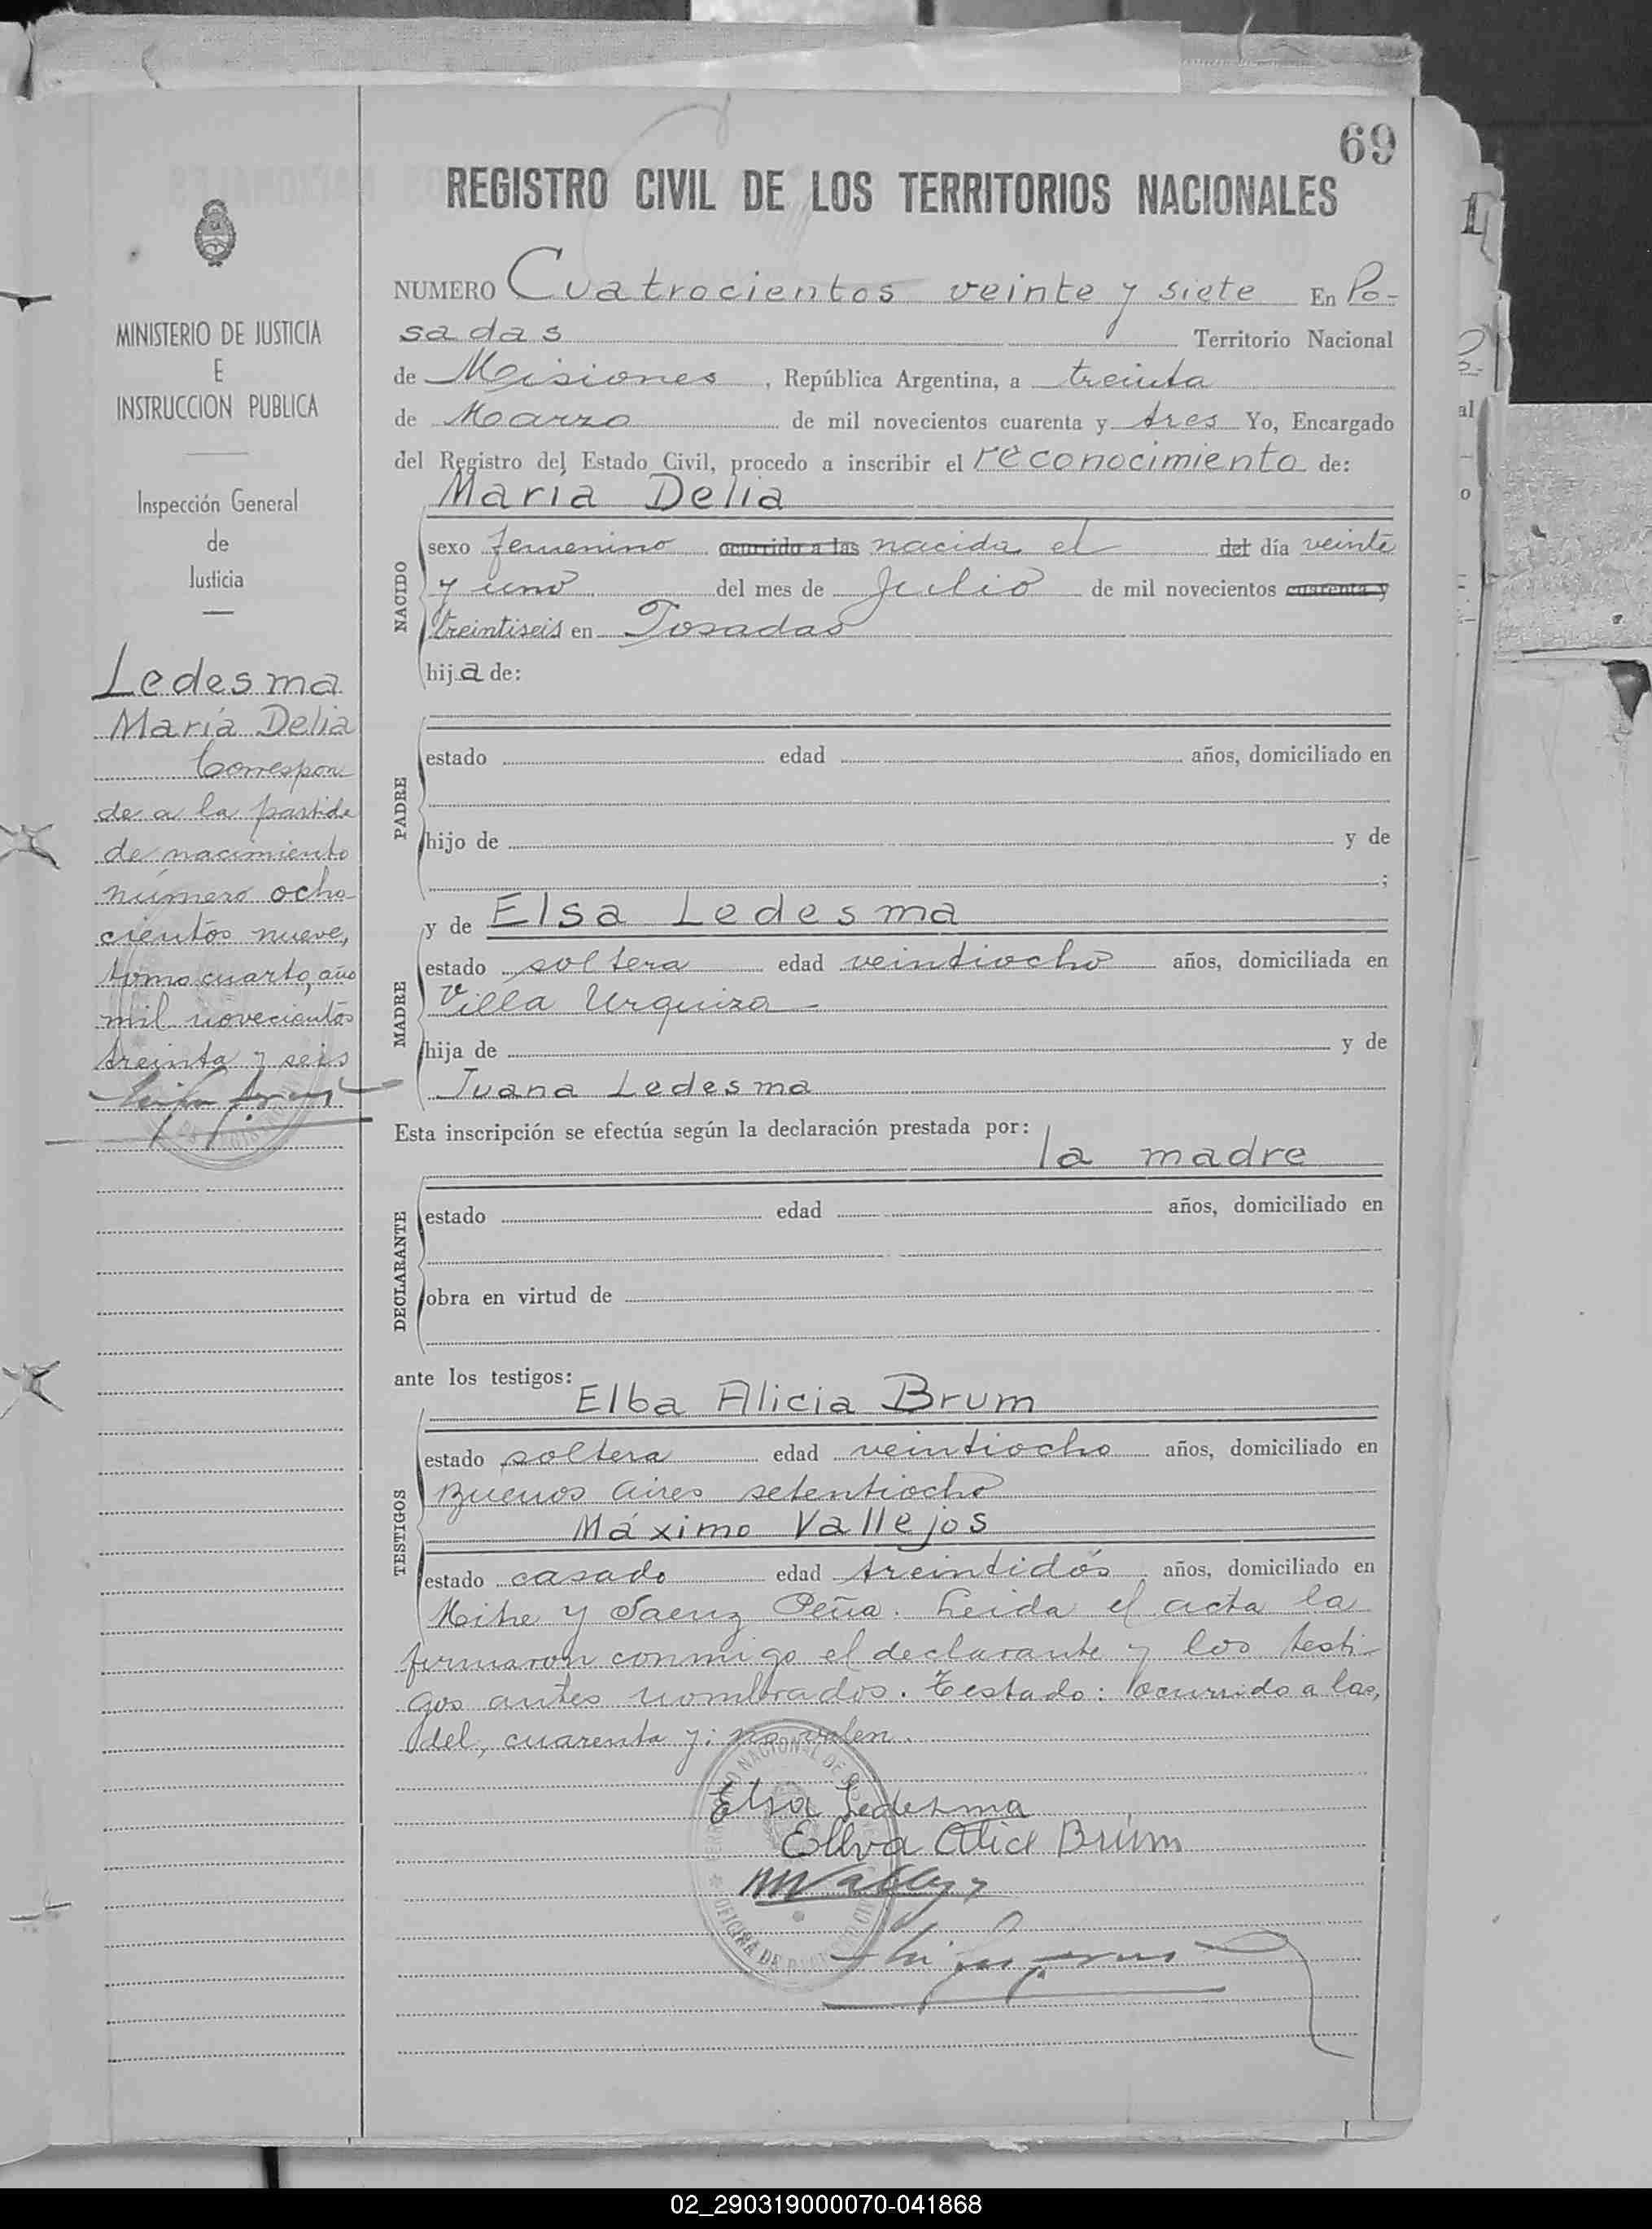 69
REGISTRO CIVIL DE LOS TERRITORIOS NACIONALES
NUMERO Cuatrocientos veinte y siete En Po-
sadas Territorio Nacional
de Misiones, República Argentina, a treinta
de Marzo de mil novecientos cuarenta y tres Yo, Encargado
del Registro del Estado Civil, procedo a inscribir el reconocimiento de:
María Delia
NACIDO
sexo femenino ocurrido a las nacida el del día veinte
y uno del mes de Julio de mil novecientos cuarenta y
treintiseis en Posadas
hija de:
PADRE
estado edad años, domiciliado en
hijo de y de
;
MADRE
y de Elsa Ledesma
estado soltera edad veintiocho años, domiciliada en
Villa Urquiza
hija de y de
Juana Ledesma
Esta inscripción se efectúa según la declaración prestada por:
la madre
DECLARANTE
estado edad años, domiciliado en
obra en virtud de
ante los testigos:
Elba Alicia Brum
TESTIGOS
estado soltera edad veintiocho años, domiciliado en
Buenos Aires setentiocho
Máximo Vallejos
estado casado edad treintidós años, domiciliado en
Mitre y Saenz Peña. Leida el acta la
firmaron conmigo el declarante y los testi-
gos antes nombrados. Testado: ocurrido a las,
del, cuarenta y: no valen.
Elsa Ledesma
Ellva Alice Brum
MINISTERIO DE JUSTICIA
E
INSTRUCCION PUBLICA
Inspección General
de
Justicia
Ledesma
María Delia
Correspon
de a la partida
de nacimiento
número ocho
cientos nueve,
tomo cuarto, año
mil novecientos
treinta y seis
02_290319000070-041868